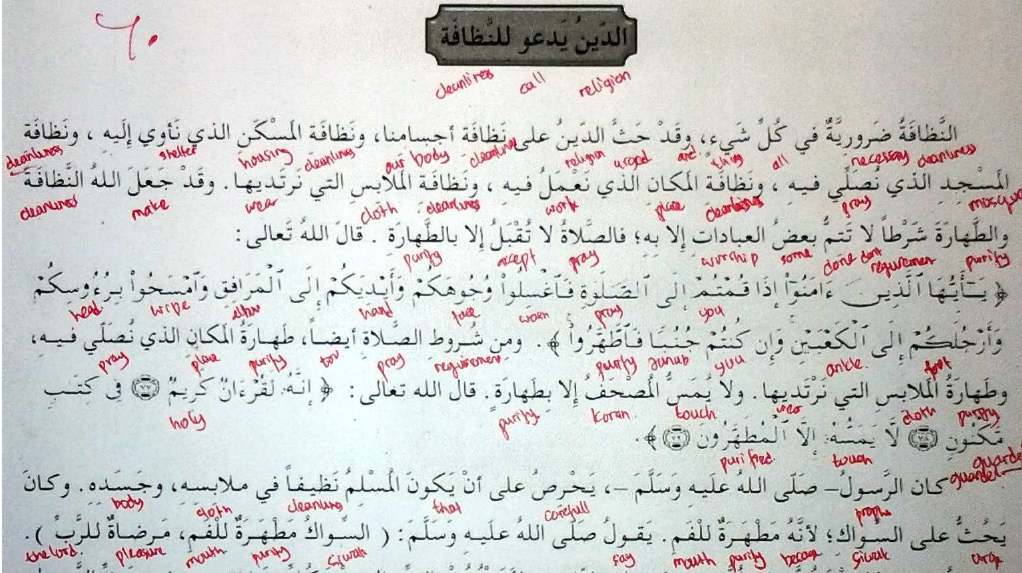 الدّينُ يَدعو للنَّظافَة
cleanliness call religion
النَّظافَةُ ضَروريَّةٌ في كُلِّ شيءٍ، وقَدْ حَثَّ الدّينُ على نَظافَة أجسامنا، ونَظافَة المَسْكَن الذي نَأوي إليه ، ونَظافَة
cleanliness shelter housing cleanliness our body cleanliness religion urged and thing all necessary cleanliness
المَسْجِد الذي نُصَلّي فيـه ، ونَظافَة المَكان الذي نَعْمَلُ فيـه ، ونَظافَة المَلابس التي نَرتَديها. وقَدْ جَعَلَ اللهُ النَّظافَةَ
cleanliness make wear cloth cleanliness work place cleanliness pray mosque
والطَّهارَةَ شَرْطاً لا تَتمُّ بعضُ العبادات إلا بهِ؛ فالصَّلاةُ لا تُقبَلُ إلا بالطَّهارَة . قالَ اللهُ تَعالى:
purify accept pray worship some done dont requirement purify
﴿ يَـٰٓأَيُّهَا ٱلَّذِينَ ءَامَنُوٓا۟ إِذَا قُمْتُمْ إِلَى ٱلصَّلَوٰةِ فَٱغْسِلُوا۟ وُجُوهَكُمْ وَأَيْدِيَكُمْ إِلَى ٱلْمَرَافِقِ وَٱمْسَحُوا۟ بِرُءُوسِكُمْ
head wipe elbow hand face wash pray you
وَأَرْجُلَكُمْ إِلَى ٱلْكَعْبَيْنِ وَإِن كُنتُمْ جُنُبًا فَٱطَّهَّرُوا۟ ﴾. ومن شُروط الصَّلاة أيضـاً، طَهارَةُ المَكان الذي نُصَلّي فيـه،
pray place purify too pray requirement purify junub you ankle foot
وطَهارَةُ المَلابس التي نَرْتَديها. ولا يُمَسُّ المُصْحَفُ إلا بطَهارَة. قال الله تعالى: ﴿ إِنَّهُۥ لَقُرْءَانٌ كَرِيمٌ ۝٧٧ فِى كِتَـٰبٍ
holy purify koran touch wear cloth purify
مَّكْنُونٍ ۝٧٨ لَّا يَمَسُّهُۥٓ إِلَّا ٱلْمُطَهَّرُونَ ۝٧٩ ﴾.
purified touch guarded
كان الرَّسولُ – صَلّى اللهُ عَليه وَسَلَّمَ –، يَحْرِص على أنْ يَكونَ المُسْلمُ نَظيفـاً في ملابسه، وجَسَده. وكانَ
body cloth cleanliness that carefull prophet guarded
يَحُثُّ على السِّواك؛ لأنَّهُ مَطْهَرَةٌ للْفَم. يَقولُ صَلّى اللهُ عليه وسَلَّمَ: ( السِّواكُ مَطْهَرَةٌ للْفَم، مَرضاةٌ للرَّبِّ ).
the lord pleasure mouth purify siwak say mouth purify because siwak urge